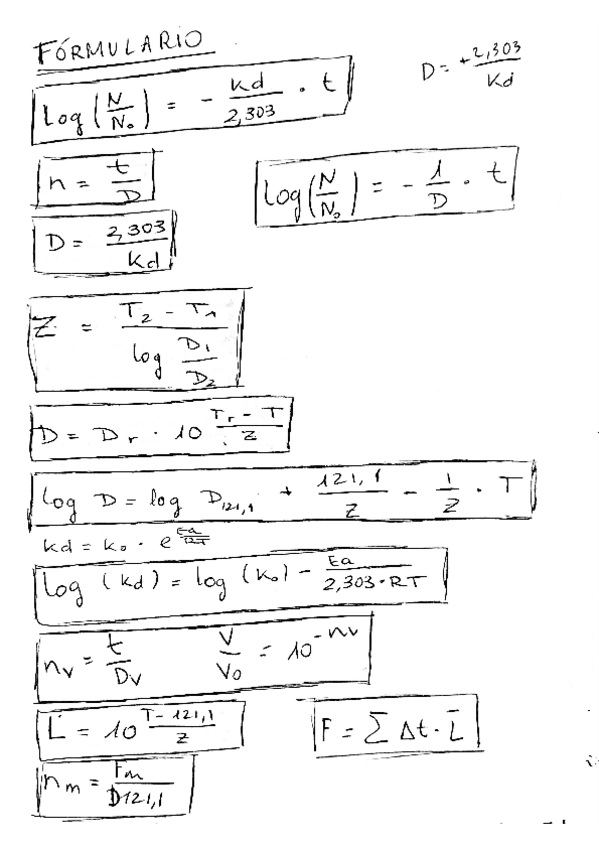 FÓRMULARIO
D = +2,303/Kd
Log (N/N₀) = - Kd/2,303 · t
n = t/D
Log (N/N₀) = - 1/D · t
D = 2,303/Kd
Z = (T₂ - T₁)/(log D₁/D₂)
D = Dᵣ · 10^((Tᵣ - T)/Z)
Log D = log D₁₂₁,₁ + 121,1/Z - 1/Z · T
Kd = K₀ · e^(Ea/RT)
Log (Kd) = log (K₀) - Ea/(2,303·RT)
nᵥ = t/Dᵥ V/V₀ = 10^(-nᵥ)
L = 10^((T - 121,1)/Z) F = Σ Δt · L̄
nₘ = Fₘ/D121,1